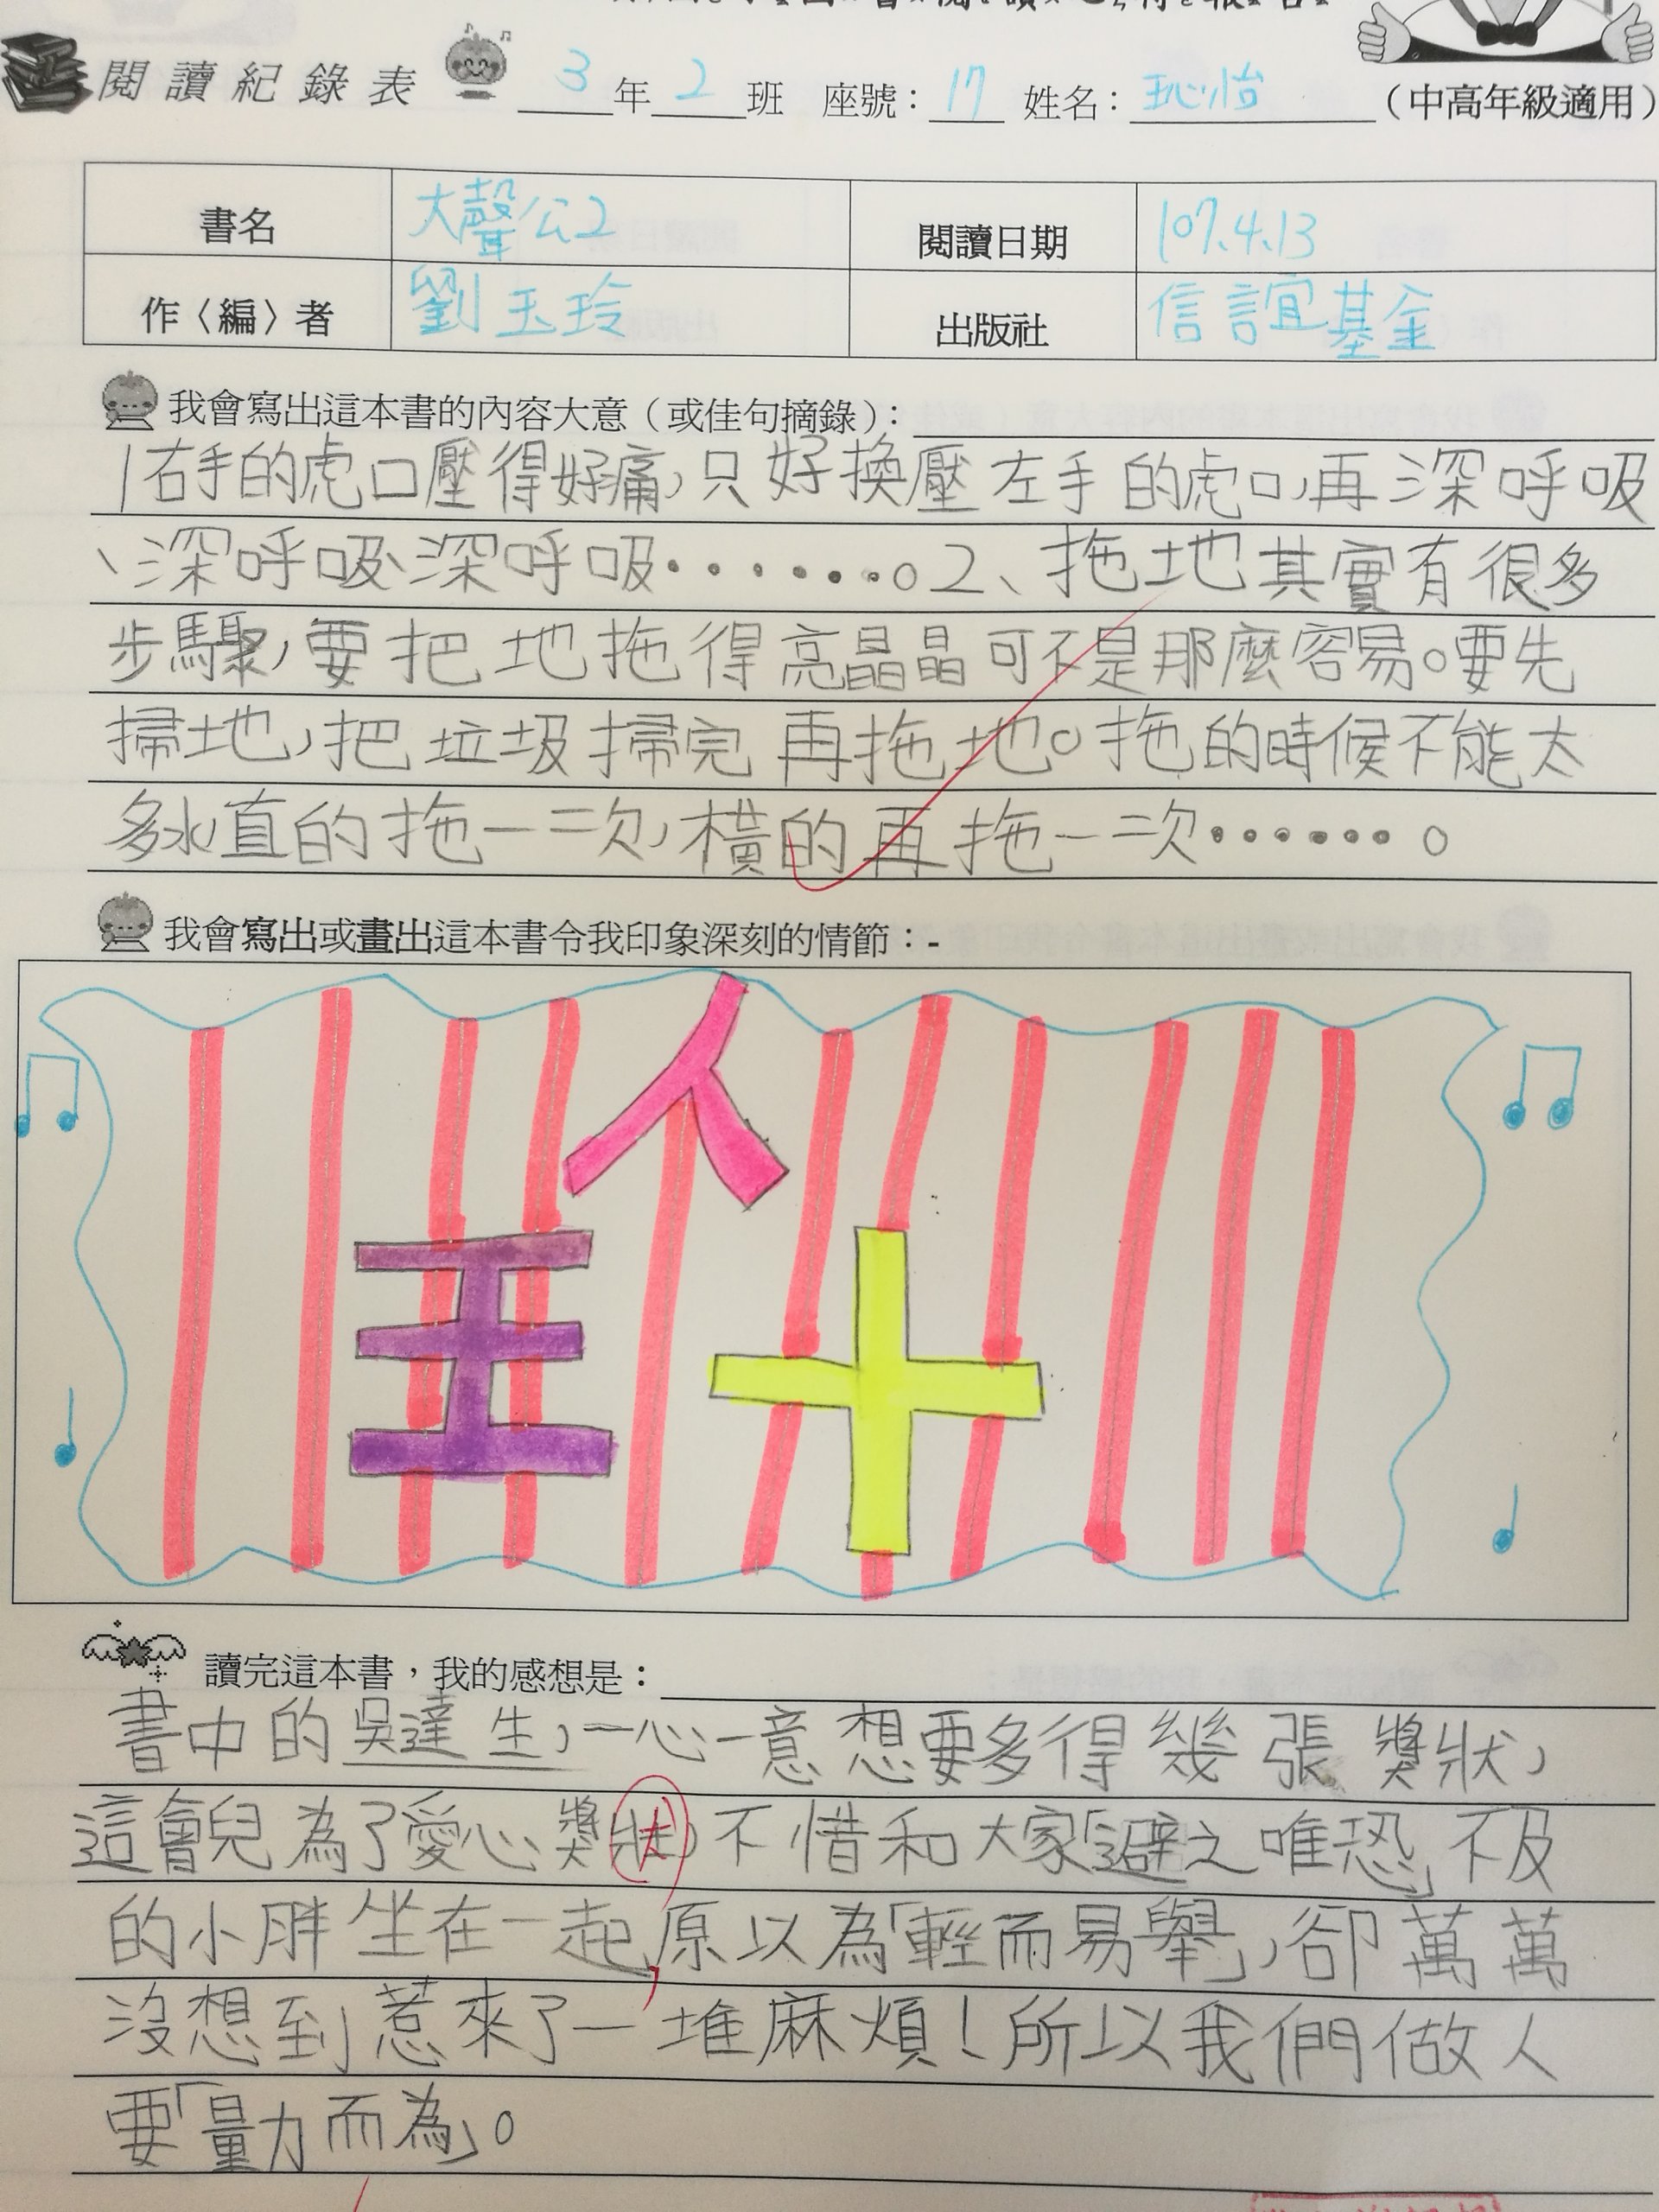 閱讀紀錄表 3年2班 座號：17 姓名： （中高年級適用）
書名 大聲公2 閱讀日期 107.4.13
作〈編〉者 劉玉玲 出版社 信誼基金
我會寫出這本書的內容大意（或佳句摘錄）：
1右手的虎口壓得好痛，只好換壓左手的虎口，再深呼吸
、深呼吸、深呼吸‧‧‧‧‧‧‧。2、拖地其實有很多
步驟，要把地拖得亮晶晶可不是那麼容易。要先
掃地，把垃圾掃完再拖地。拖的時候不能太
多水，直的拖一二次，橫的再拖一二次‧‧‧‧‧‧。
我會寫出或畫出這本書令我印象深刻的情節：-
人
王 十
讀完這本書，我的感想是：
書中的吳達生，一心一意想要多得幾張獎狀，
這會兒為了愛心獎狀，不惜和大家「避之唯恐」不及
的小胖坐在一起，原以為「輕而易舉」，卻萬萬
沒想到惹來了一堆麻煩！所以我們做人
要「量力而為」。